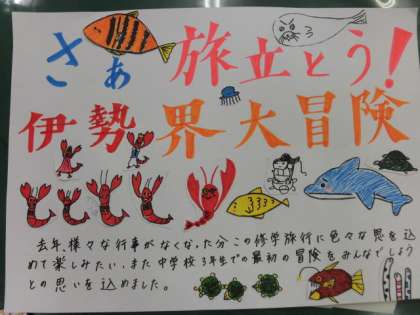 さぁ 旅立とう!
伊勢界大冒険
去年、様々な行事がなくなった分この修学旅行に色々な思を込
めて楽しみたい、また中学校3年生での最初の冒険をみんなでしよう
との思いを込めました。